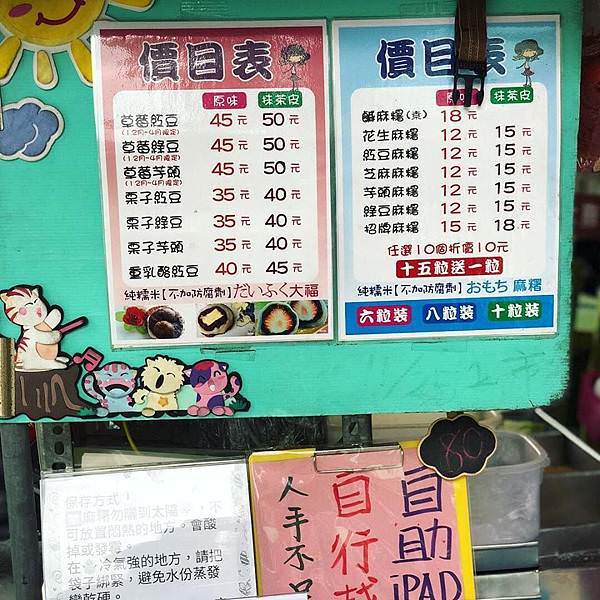 價目表
原味 抹茶皮
草莓紅豆 45元 50元
(12月~4月限定)
草莓綠豆 45元 50元
(12月~4月限定)
草莓芋頭 45元 50元
(12月~4月限定)
栗子紅豆 35元 40元
栗子綠豆 35元 40元
栗子芋頭 35元 40元
重乳酪紅豆 40元 45元
純糯米【不加防腐劑】だいふく大福
價目表
原味 抹茶皮
鹹麻糬(素) 18元
花生麻糬 12元 15元
紅豆麻糬 12元 15元
芝麻麻糬 12元 15元
芋頭麻糬 12元 15元
綠豆麻糬 12元 15元
招牌麻糬 15元 18元
任選10個折價10元
十五粒送一粒
純糯米【不加防腐劑】おもち 麻糬
六粒裝 八粒裝 十粒裝
80
保存方式：
麻糬勿曬到太陽，不
可放置悶熱的地方。會酸
掉或發
在 冷氣強的地方，請把
袋子綁緊，避免水份蒸發
變乾硬。
自助
iPAD
自行
人手不